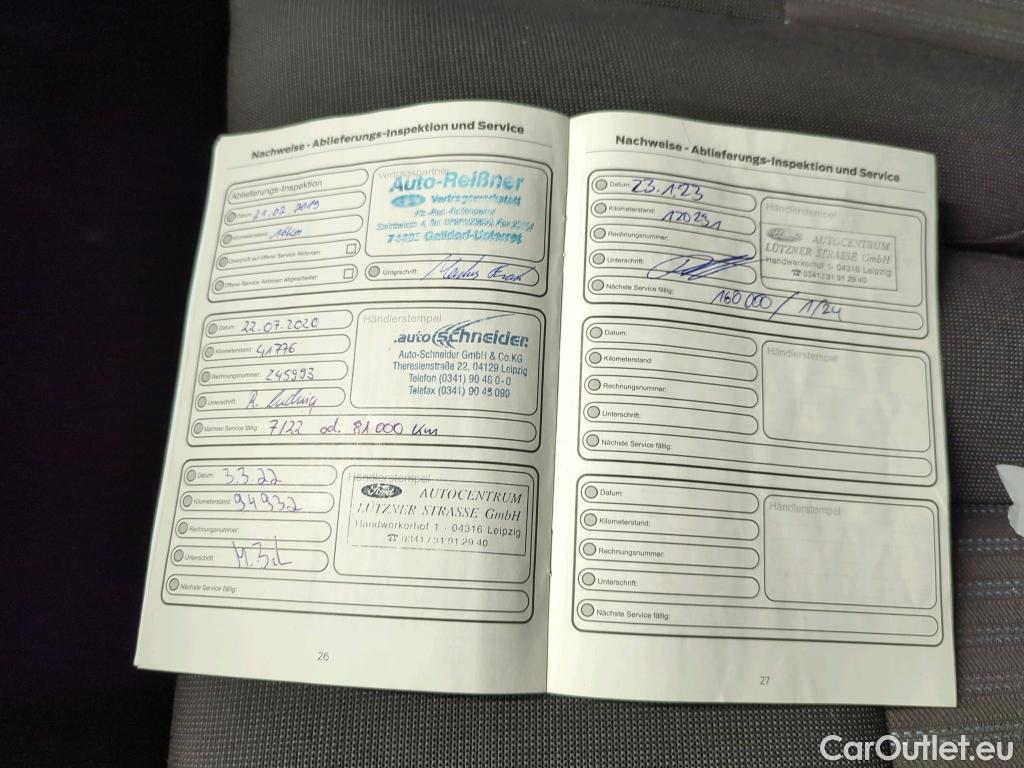 Nachweise - Ablieferungs-Inspektion und Service
Ablieferungs-Inspektion
Datum: 21.02 2019
Kilometerstand: 16km
Überprüft auf offene Service Aktionen
Offene Service-Aktionen abgearbeitet:
Vertragspartner
Auto-Reißner
Vertragswerkstatt
74405 Gaildorf-Unterrot
Unterschrift:
Datum: 22.07.2020
Kilometerstand: 41776
Rechnungsnummer: 245993
Unterschrift: R. Ludwig
Nächste Service fällig: 7/22 od. 81000 km
Händlerstempel
.auto schneider.
Auto-Schneider GmbH & Co.KG
Theresienstraße 22, 04129 Leipzig
Telefon (0341) 90 46 0-0
Telefax (0341) 90 46 090
Datum: 3.3.22
Kilometerstand: 94932
Rechnungsnummer:
Unterschrift:
Nächste Service fällig:
Händlerstempel
Ford AUTOCENTRUM
LÜTZNER STRASSE GmbH
Handwerkerhof 1 · 04316 Leipzig
☎ 0341/31 91 29 40
26
Nachweise - Ablieferungs-Inspektion und Service
Datum: 23.1.23
Kilometerstand: 120291
Rechnungsnummer:
Unterschrift:
Nächste Service fällig: 160 000 / 1/24
Händlerstempel
AUTOCENTRUM
LÜTZNER STRASSE GmbH
Handwerkerhof 1 · 04316 Leipzig
☎ 0341/31 91 29 40
Datum:
Kilometerstand:
Rechnungsnummer:
Unterschrift:
Nächste Service fällig:
Händlerstempel
Datum:
Kilometerstand:
Rechnungsnummer:
Unterschrift:
Nächste Service fällig:
Händlerstempel
27
CarOutlet.eu